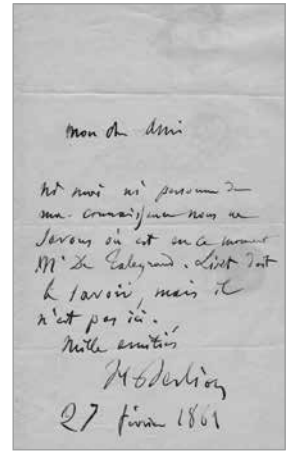 mon cher Ami
ni moi ni personne de
ma connaissance nous ne
savons où est en ce moment
Mr De Talegrand. Liszt doit
le savoir, mais il
n'est pas ici.
Mille amitiés
H Berlioz
27 février 1861